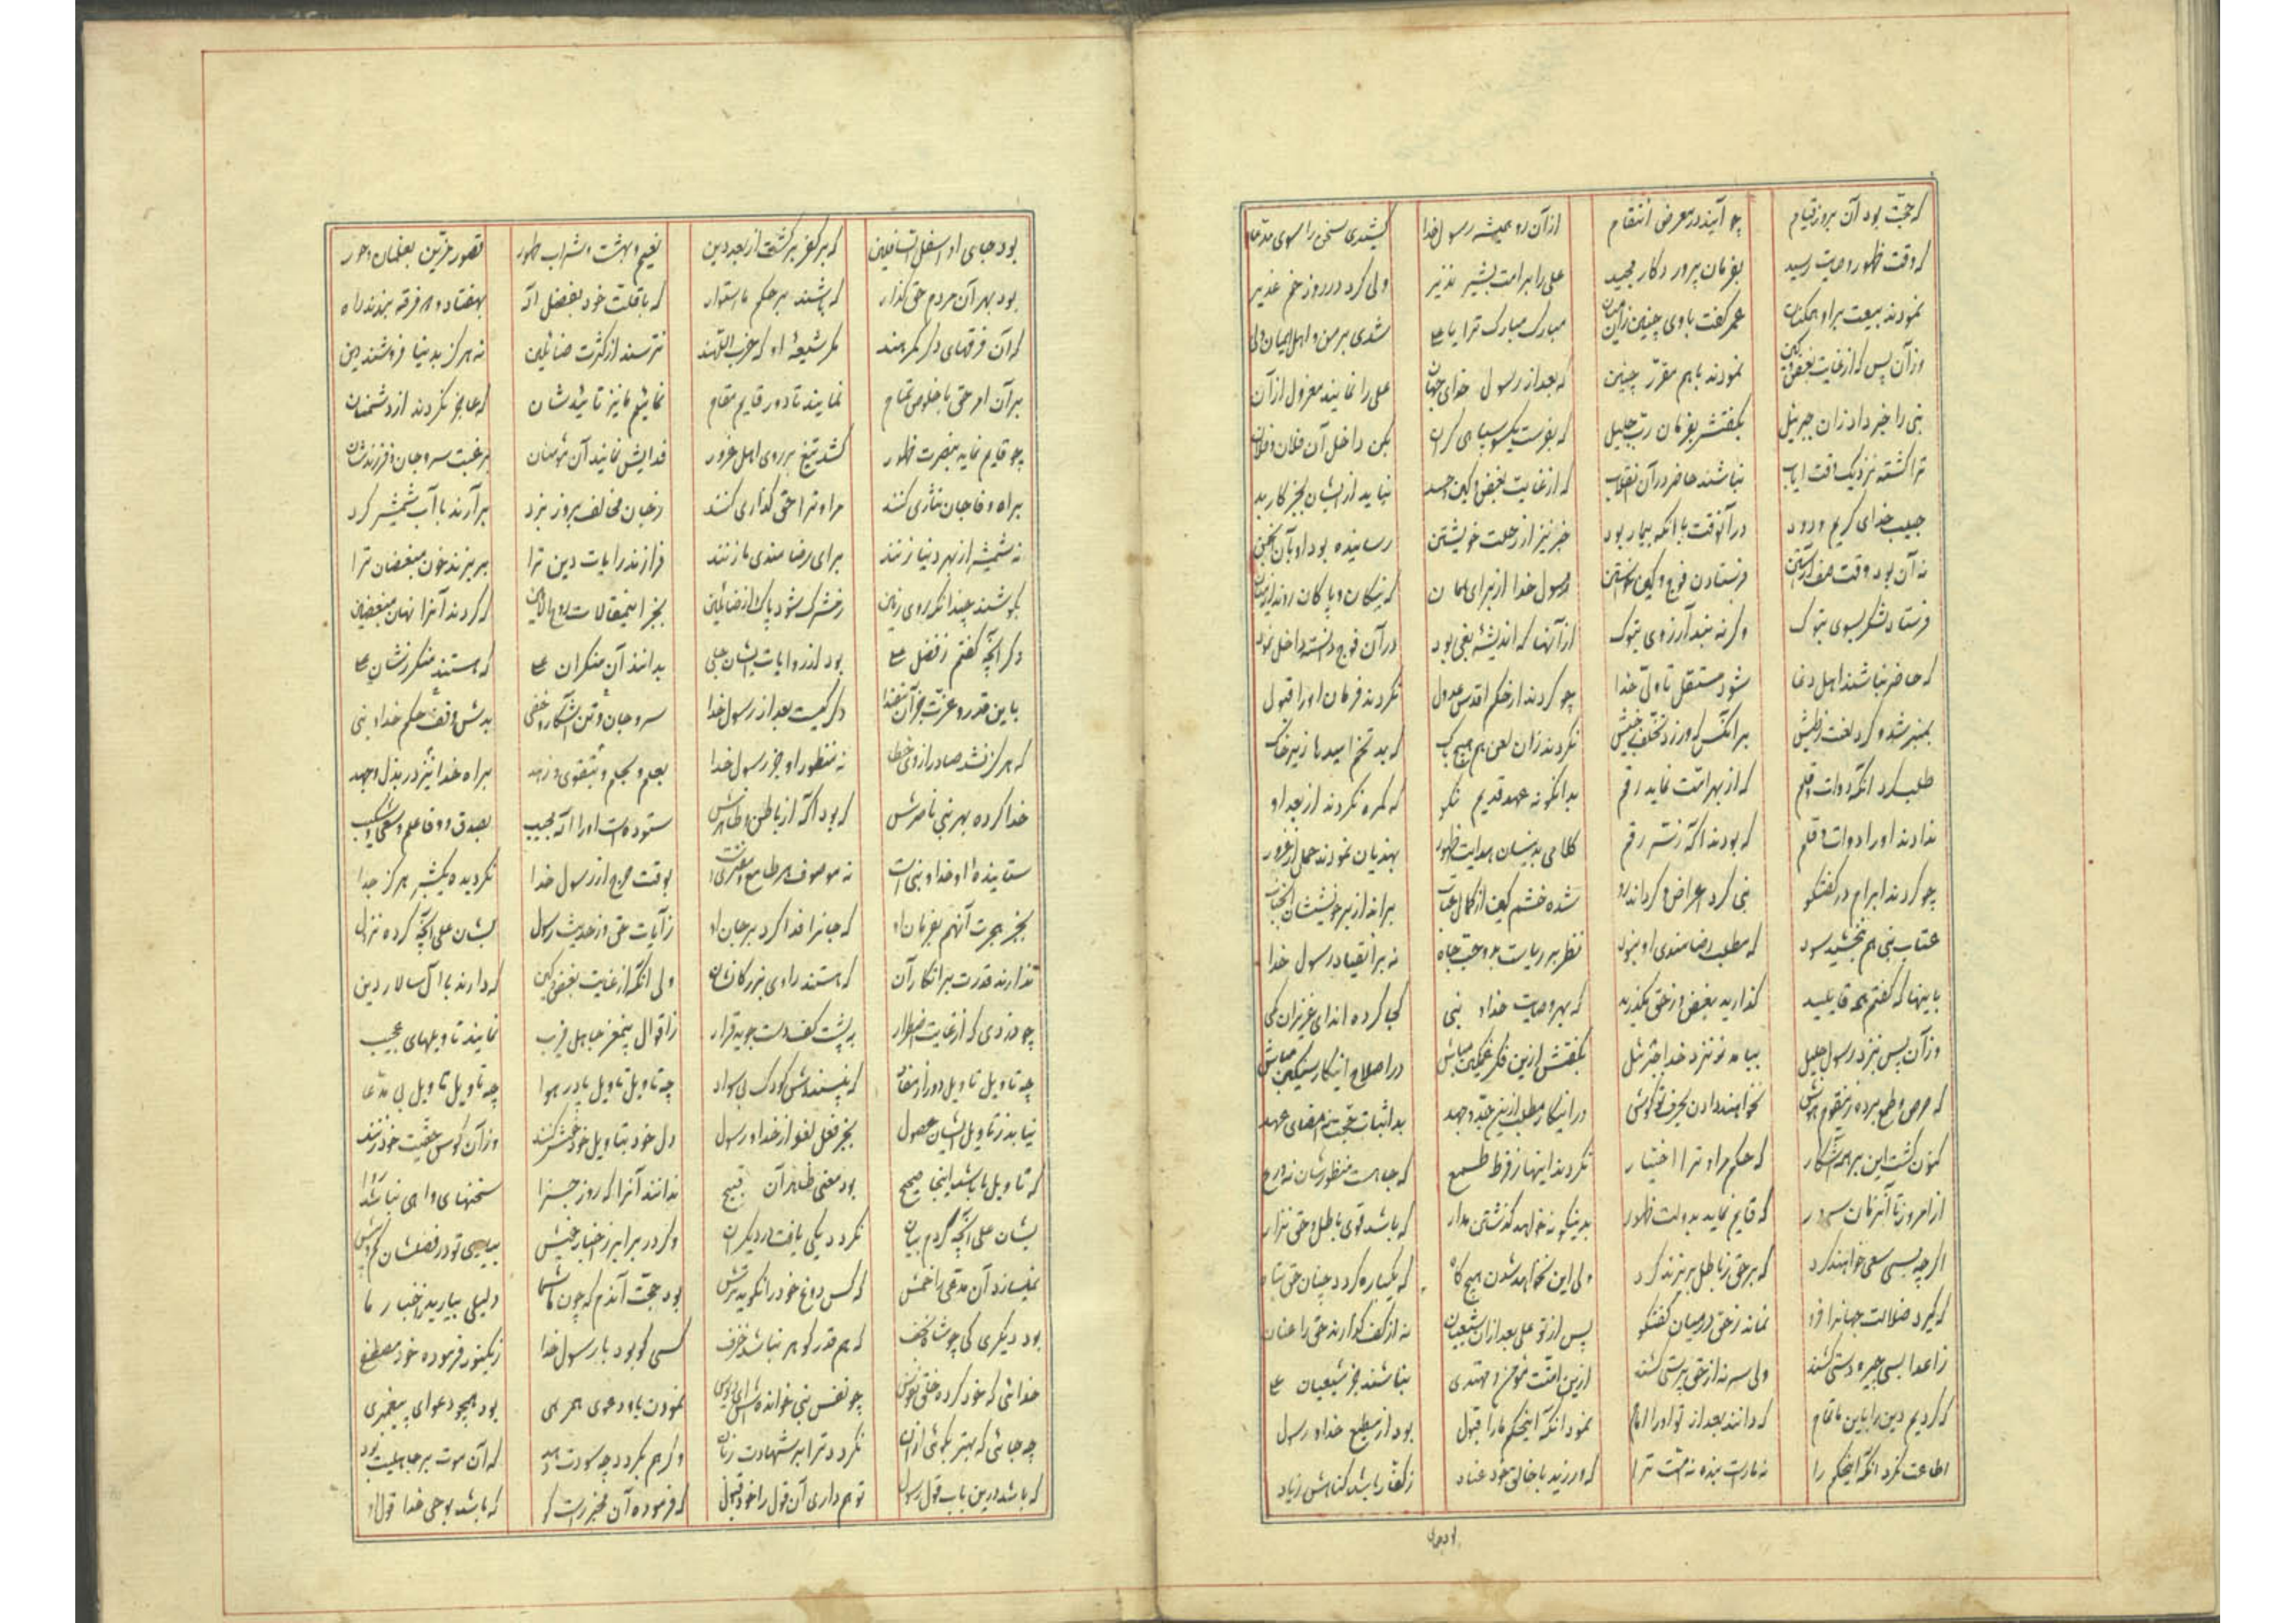 که حجت بود آن بروز قیام چو آیند در معرض انتقام از آن رو همیشه رسول خدا کشیدی سخن را سوی مدعا
که وقت ظهور وصیت رسید بفرمان پروردکار مجید علی را بر امت بشیر نذیر ولی کرد در روز خم غدیر
نمودند بیعت براو همکنان عمر کفت با وی چنین زان میان مبارک مبارک ترا یا علی شدی بر من و اهل ایمان ولی
وزآن پس که از غایت بغض و کین نمودند باهم مقرر چنین که بعد از رسول خدای جهان علی را نمایند معزول از آن
نبی را خبر داد زان جبرئیل بکفتش بفرمان رب جلیل که بفرست یکسو سپاهی کران بکن داخل آن فلان و فلان
ترا کشته نزدیک وقت ایاب نباشند حاضر در آن انقلاب که از غایت بغض و کین و حسد نیاید از ایشان بجز کار بد
حبیب خدای کریم و ودود در آنوقت با آنکه بیمار بود خبر نیز از رحلت خویشتن رسانیده بود او بآن انجمن
نه آن بود وقت صف آراستن فرستادن فوج و کین خواستن رسول خدا از برای همان که نیکان و پاکان روند از میان
فرستاد لشکر بسوی تبوک وکرنه نبد آرزوی تبوک از آنها که اندیشهٔ بغی بود در آن فوج دانسته داخل نمود
که حاضر نباشند اهل دغا شود مستقل تا ولی خدا چو کردند از حکم اقدس عدول نکردند فرمان او را قبول
بمنبر شد و کرد لعنت ز طیش بر آنکس که ورزد تخلف ز جیش نکردند زان لعن هم هیچ باک که بد تخم امید ها زیر خاک
طلب کرد آنکه دوات و قلم که از بهر امت نماید رقم بدانکونه عهد قدیم نکو که کمره نکردند از بعد او
ندادند او را دوات و قلم که بودند آکه ز سر رقم کلامی بدینسان هدایت ظهور بهذیان نمودند حمل از غرور
چو کردند ابرام در کفتکو نبی کرد اعراض و کرداند رو شده خشم کین از کمال عتاب براند از بر خویششان آنجناب
عتاب نبی هم نبخشید سود که مطلب رضامندی او نبود نظر بر ریاست بد و حب جاه نه بر انقیاد رسول خدا
باینها که کفتم همه قایلید کذارید بغض و ز حق مکذرید که بهر وصیت خدا و نبی کجا کرده اند ای عزیزان کمی
وزآن پس بنزد رسول جلیل بیامد ز نزد خدا جبرئیل بکفتش ازین فکر غمکین مباش در اصلاح اینکار سنکین مباش
که حرص و طمع برده زین قوم هوش نخواهند دادن بحرف تو کوش در اینکار مطلب ازین جد و جهد بد اثبات حجت نه امضای عهد
کنون کشت این بر همه آشکار که حکم مرا و ترا اختیار نکردند اینها ز فرط طمع که جاهست منظورشان نه ورع
از امروز تا آنزمان سرور که قایم نماید بدولت ظهور بدینکونه خواهد کذشتن مدار که باشد قوی باطل و حق نزار
اکر چه بسی سعی خواهند کرد که بر حق ز باطل برند کرد ولی این نخواهد شدن هیچ کاه که یکباره کردد جهان حق تباه
که کیرد ضلالت جهانرا فرو نماند ز حق در میان کفتکو پس از تو علی بعد از آن شیعیان نه از کف کذارند حق را عنان
ز اعدا بسی جبر و دستی کشند ولی سر نه از حق پرستی کشند ازین امت مؤمن و مهتدی نباشند جز شیعیان علی
که کردیم دین را باین ها تمام که دانند بعد از تو او را امام نمود آنکه این حکم ما را قبول بود از مطیع خدا و رسول
اطاعت نکرد آنکه این حکم را نه ماراست بنده نه امت ترا که ورزید با خالق خود عناد ز کفار باشد کناهش زیاد
بود جای او اسفل السافلین که بر کفر برکشت از بعد دین نعیم و بهشت و شراب طهور قصور مزین بغلمان و حور
بود بهر آن مردم حق کذار که باشند بر حکم ما استوار که با قلت خود بفضل اله بهفتاد و هر فرقه بندند راه
که آن فرقهای دکر کمرهند مکر شیعهٔ او که حزب اللهند نترسند از کثرت ضالین نه هرکز بدنیا فروشند دین
بر آن امر حق با خلوص تمام نمایند تا دور قایم مقام نمائیم ما نیز تائیدشان که عاجز نکردند از دشمنان
چو قایم نماید بنصرت ظهور کشد تیغ بر روی اهل غرور فدایش نمایند آن مؤمنان برغبت سر و جان و فرزندشان
براه وفا جان نثاری کنند مرا و ترا حق کذاری کنند ز جان مخالف بروز نبرد برآرند با آب شمشیر کرد
نه شمشیر از بهر دنیا زنند برای رضامندی ما زنند فرازند رایات دین ترا بریزند خون مبغضان ترا
بکوشند چندانکه روی زمین ز شرک شود پاک و از ضالین بجز اینمقالات روح الامین که کردند آنرا نهان مبغضین
دکر آنچه کفتم ز فضل علی بود از روایات ایشان جلی بدانند آن منکران علی که هستند منکر ز شان علی
باین قدر و عزت جز آن مقتدا دکر کیست بعد از رسول خدا سر و جان و تن آشکار و خفی بدش وقف حکم خدا و نبی
که هرکز نشد صادر از وی خطا نه منظور او جز رسول خدا بعلم و بحلم و بتقوی و زهد براه خدا نیز در بذل و جهد
خدا کرده بهر نبی ناصرش که بود آکه از باطن و ظاهرش ستوده است او را اله مجیب بصدق و وفا علم و سعی و شکیب
ستایندهٔ او خدا و نبی است نه موصوف هر طامع و مفتری است بوقت حرج از رسول خدا نکردیده یکشبر هرکز جدا
بجز هجرت آنهم بفرمان او که جانرا فدا کرد بر جان او ز آیات حق وز حدیث رسول بشان علی آنچه کرده نزول
ندارند قدرت بر انکار آن که هستند راوی بزرکانشان ولی آنکه از غایت بغض و کین که دارند با آل سالار دین
چو دزدی که از غایت اضطرار بپشت کف دست جوید قرار ز اقوال پیغمبر جاهل فریب نمایند تاویلهای عجیب
چه تاویل تاویل دور از مفاد که نپسندش کودک بی سواد چه تاویل تاویل پا در هوا چه تاویل تاویل بی مدعا
نیاید ز تاویل ایشان حصول بجز فعل لغو از خدا و رسول دل خود بتاویل خود خوش کنند وزآن کوس حقیت خود زنند
که تاویل باید باینجا صحیح بود معنی ظاهر آن قبیح ندانند آنرا که روز جزا سخنهای واهی نباشد روا
بشان علی آنچه کردم بیان نکردد یکی یافت در دیکران وکر در برابر ز اخبار خویش
نمیسازد آن مدعی را خمش که کس دوغ خود را نکوید ترش بود حجت آندم که چون ما شما دلیلی بیارید ز اخبار ما
بود دیکری کی چو شاه نجف که هم قدر کوهر نباشد خزف کسی کو بود با رسول خدا ز یکنور فرموده خود مصطفی
خدائی که خود کرده خلق نفوس چو نفس نبی خوانده نمودن باو دعوی همرهی بود همچو دعوای پیغمبری
چه جائی که بهتر بکوئی از آن نکردد ترا بر شهادت زبان وکر هم بکردد چه سودت دهد که آن موت بر جاهلیت بود
که باشد درین باب قول رسول تو هم داری آن قول را خود قبول که فرموده آن مخبر راست کو که باشد بوحی خدا قول او